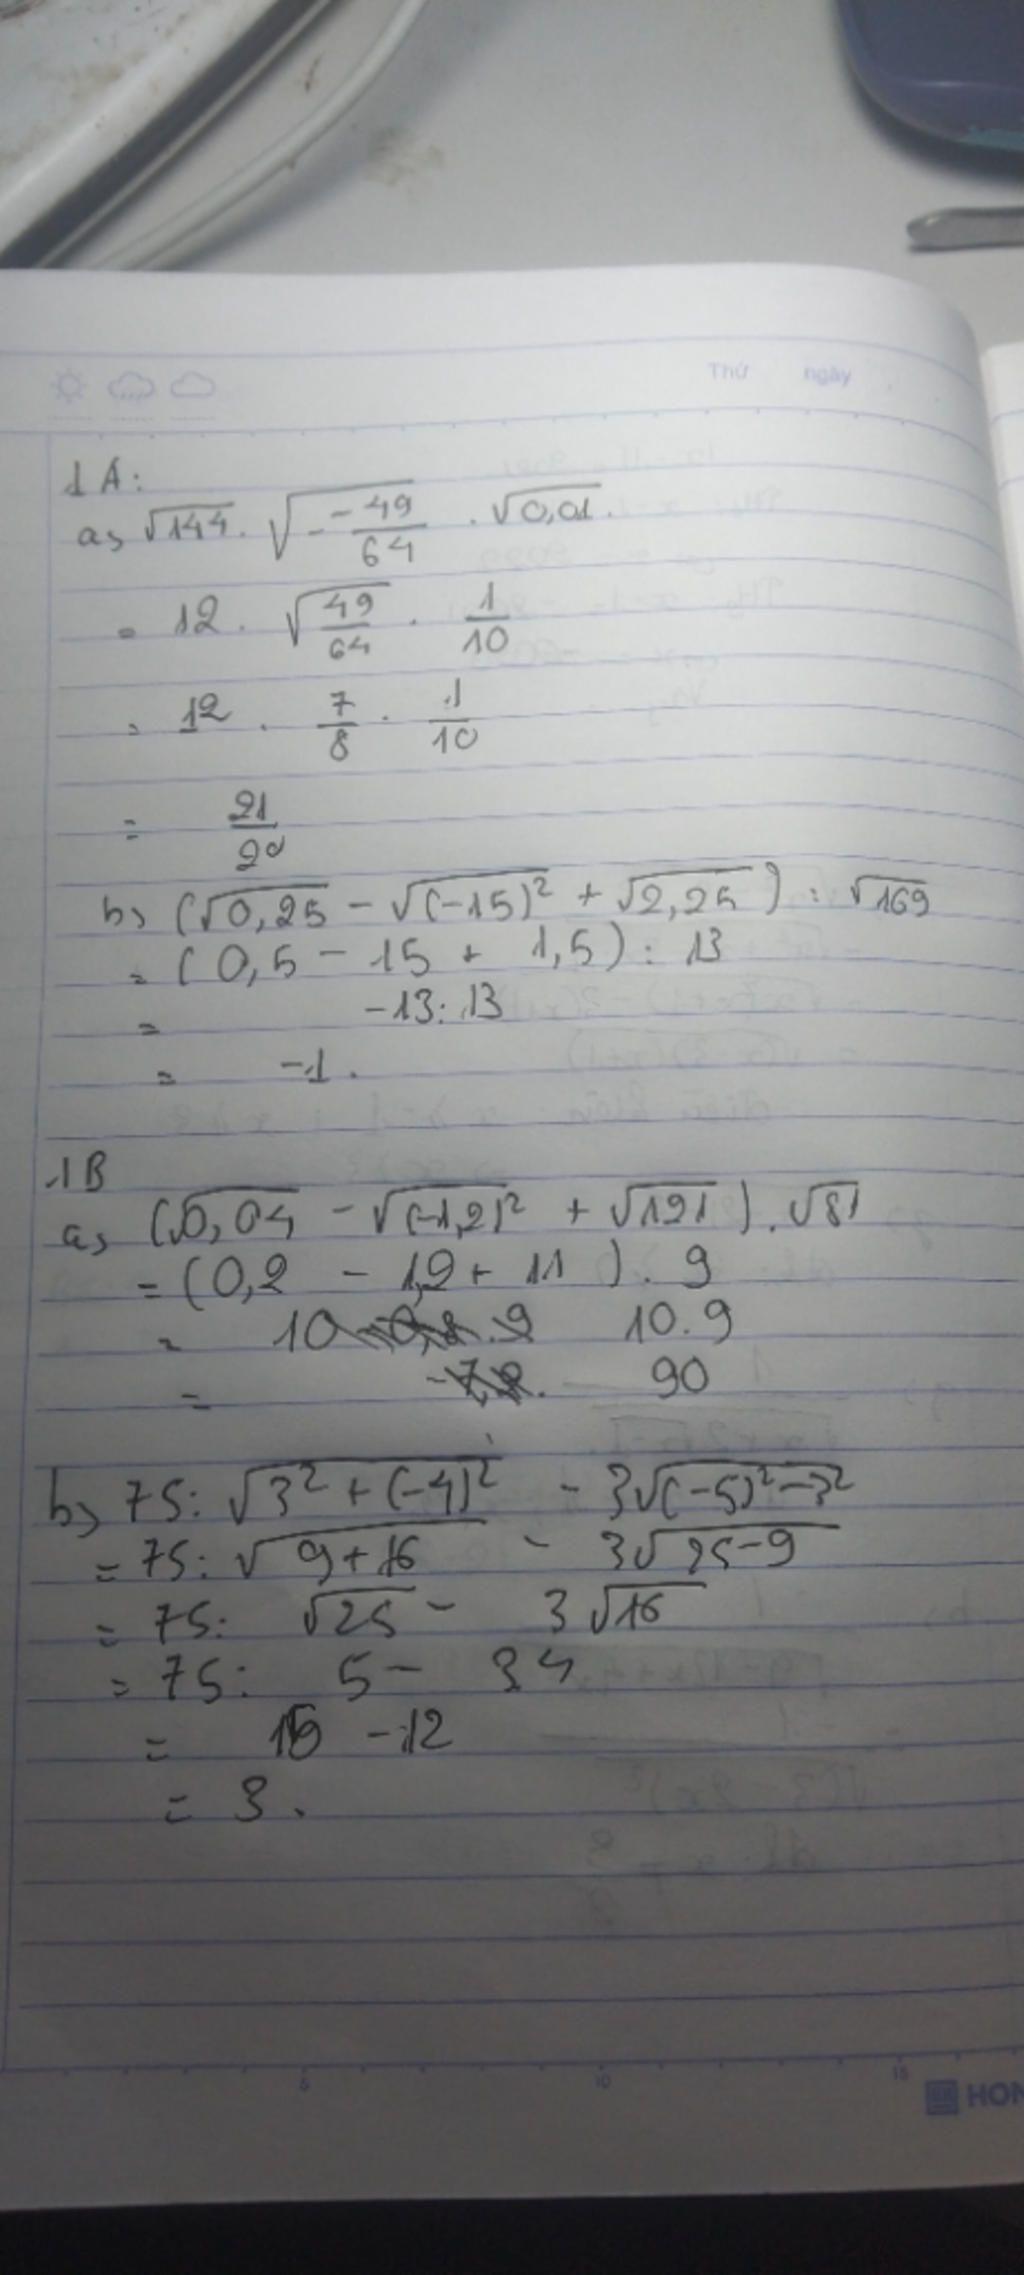 Thứ ngày
1A:
a, √144 . √(- -49/64) . √0,01.
= 12 . √(49/64) . 1/10
= 12 . 7/8 . 1/10
= 21/20
b, (√0,25 - √(-15)² + √2,25) : √169
= (0,5 - 15 + 1,5) : 13
= -13 : 13
= -1.
1B
a, (√0,04 - √(-1,2)² + √121) . √81
= (0,2 - 1,2 + 11) . 9
= 10 . 9
= 90
b, 75 : √(3² + (-4)²) - 3√((-5)² - 3²)
= 75 : √(9 + 16) - 3√(25 - 9)
= 75 : √25 - 3√16
= 75 : 5 - 3 4
= 15 - 12
= 3.
5 10 15
HON